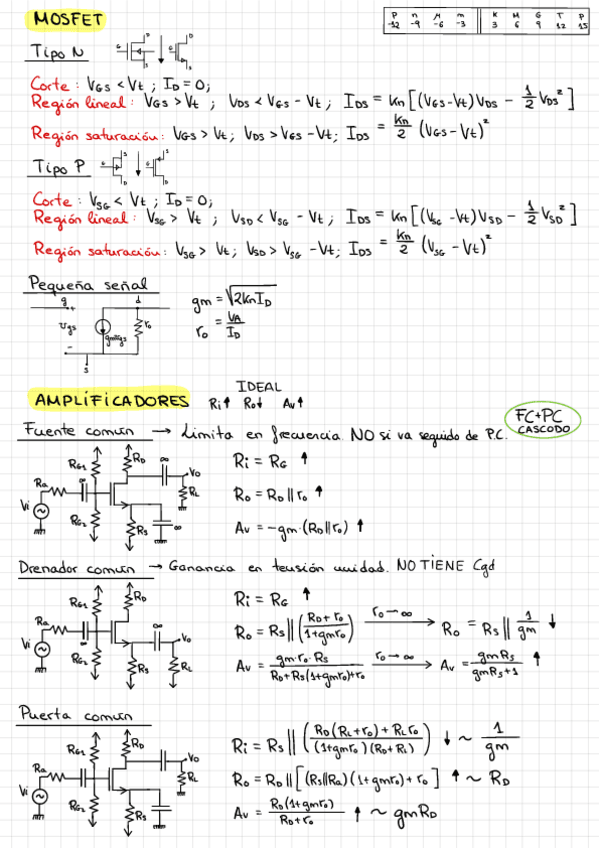 MOSFET
P n μ m K M G T P
-12 -9 -6 -3 3 6 9 12 15
Tipo N
G D S G D S
Corte: VGS < Vt ; ID = 0;
Región lineal: VGS > Vt ; VDS < VGS - Vt ; IDS = Kn[(VGS-Vt)VDS - 1/2 VDS²]
Región saturación: VGS > Vt; VDS > VGS - Vt; IDS = Kn/2 (VGS - Vt)²
Tipo P
G S D G S D
Corte: VSG < Vt ; ID = 0;
Región lineal: VSG > Vt ; VSD < VSG - Vt ; IDS = Kn[(VSG - Vt)VSD - 1/2 VSD²]
Región saturación: VSG > Vt; VSD > VSG - Vt; IDS = Kn/2 (VSG - Vt)²
Pequeña señal
g d
+ Vgs - gmVgs ro
s
gm = √2KnID
ro = VA/ID
AMPLIFICADORES
IDEAL
Ri↑ Ro↓ Av↑
FC+PC
CASCODO
Fuente común → Limita en frecuencia. NO si va seguido de P.C.
RG1 RD ∞ Vo
Ra ∞ RL
Vi RG2 RS ∞
Ri = RG ↑
Ro = RD || ro ↑
Av = -gm·(RD||ro) ↑
Drenador común → Ganancia en tensión unidad. NO TIENE Cgd
RG1 RD
Ra ∞ ∞ Vo
Vi RG2 RS RL
Ri = RG ↑
Ro = RS || (RD + ro / 1+gmro) ro→∞ → Ro = RS || 1/gm ↓
Av = gm·ro·RS / RD+RS(1+gmro)+ro ro→∞ → Av = gmRS / gmRS+1 ↑
Puerta común
RG1 RD Vo
Ra RL
Vi RG2 RS
Ri = RS || (RD(RL+ro) + RLro / (1+gmro)(RD+RL)) ↓ ~ 1/gm
Ro = RD || [(RS||Ra)(1+gmro) + ro] ↑ ~ RD
Av = RD(1+gmro) / RD+ro ↑ ~ gmRD